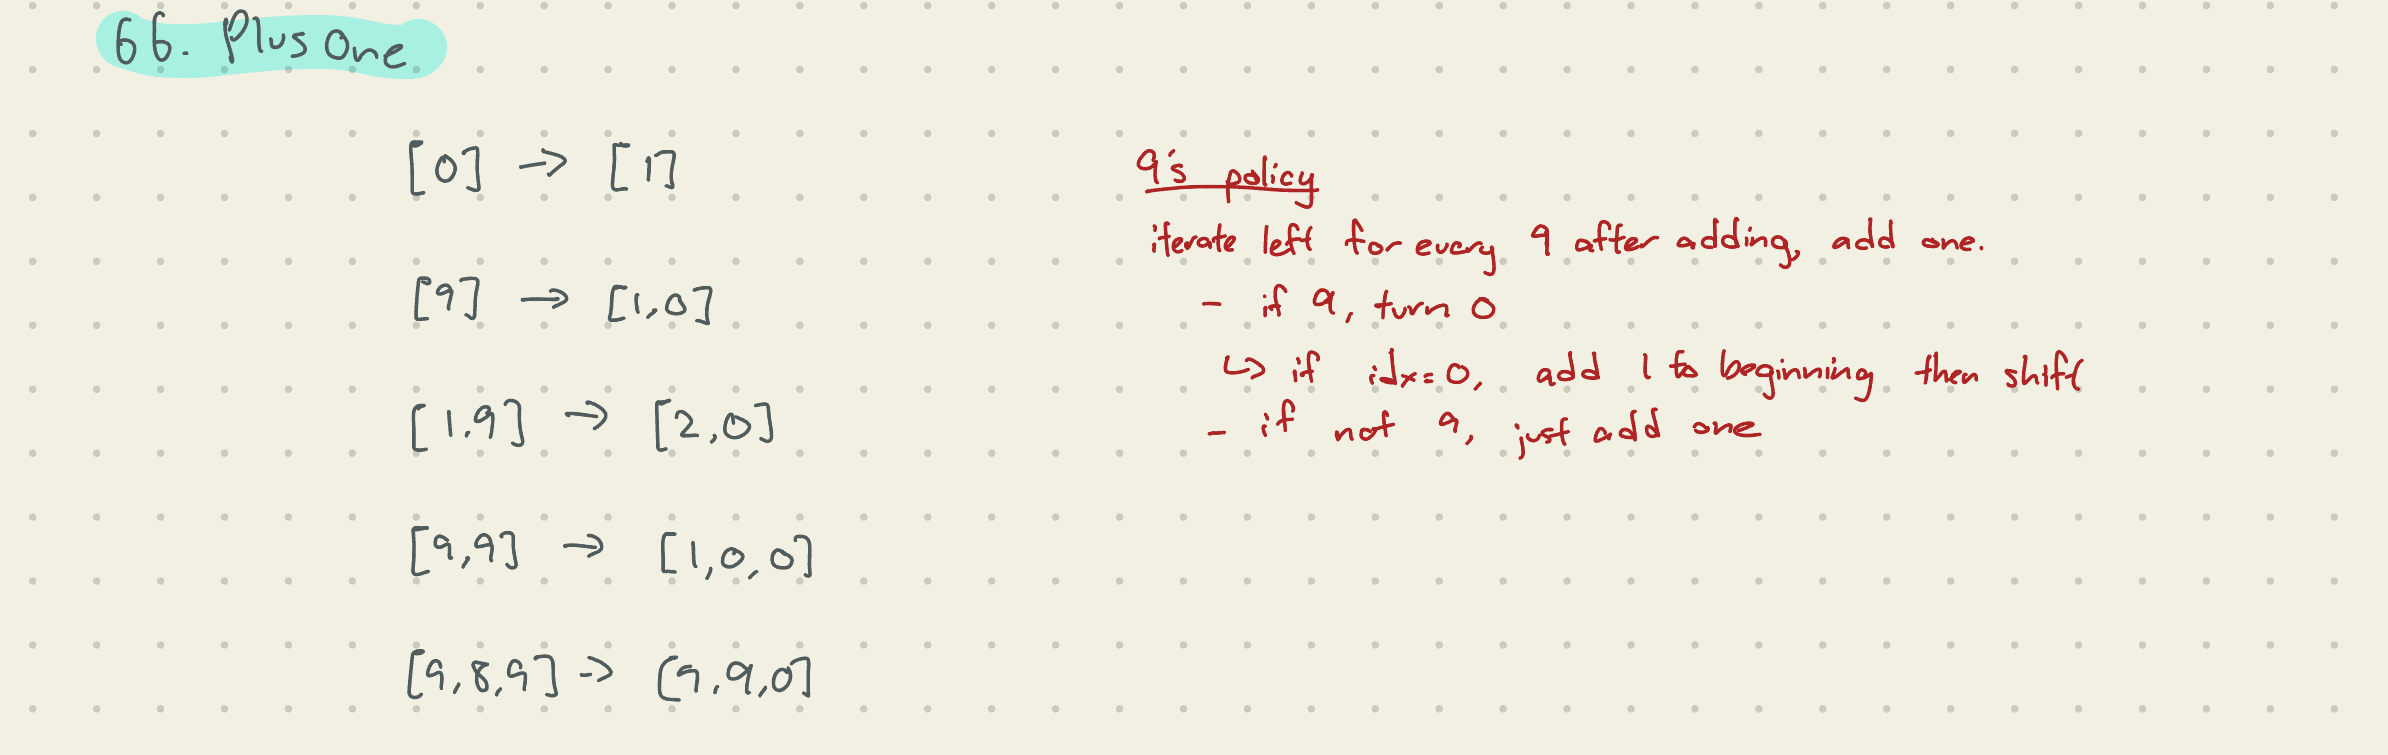 66. Plus One
[0] → [1]
[9] → [1,0]
[1,9] → [2,0]
[9,9] → [1,0,0]
[9,8,9] → [9,9,0]
9's policy
iterate left for every 9 after adding, add one.
- if 9, turn 0
↳ if idx=0, add 1 to beginning then shift
- if not 9, just add one